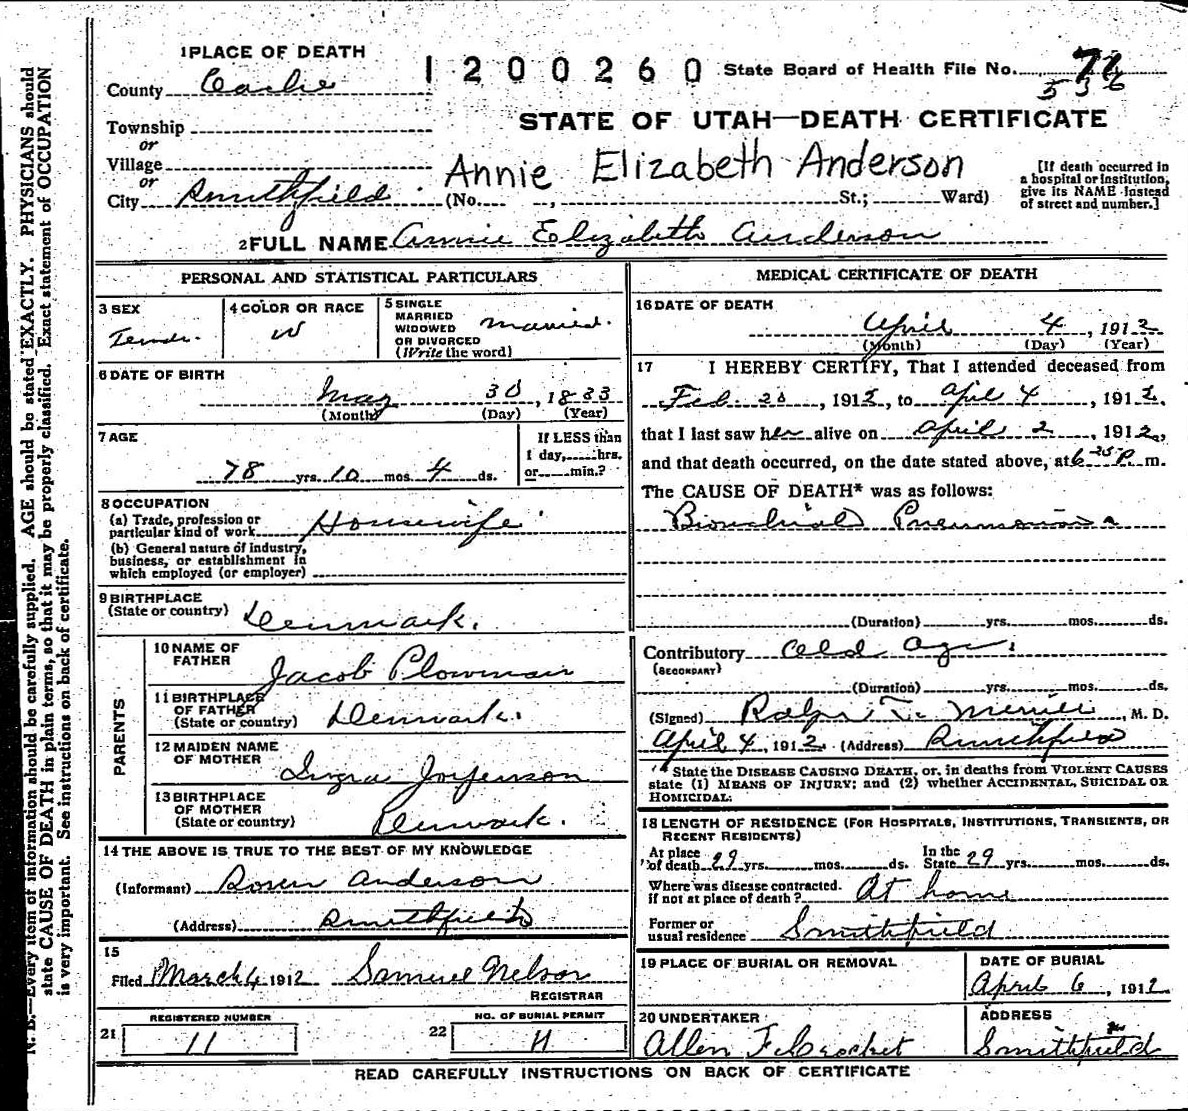 N. B.—Every item of information should be carefully supplied. AGE should be stated EXACTLY. PHYSICIANS should
state CAUSE OF DEATH in plain terms, so that it may be properly classified. Exact statement of OCCUPATION
is very important. See instructions on back of certificate.
1 PLACE OF DEATH
1200260
State Board of Health File No.
536
County Cache
STATE OF UTAH—DEATH CERTIFICATE
Township
or
Village
or
Annie Elizabeth Anderson
City Smithfield (No. , St.; Ward)
[If death occurred in
a hospital or institution,
give its NAME instead
of street and number.]
2 FULL NAME Annie Elizabeth Anderson
PERSONAL AND STATISTICAL PARTICULARS
3 SEX
Female
4 COLOR OR RACE
W
5 SINGLE
MARRIED
WIDOWED
OR DIVORCED
(Write the word)
married.
6 DATE OF BIRTH
May 30, 1833
(Month) (Day) (Year)
7 AGE
78 yrs. 10 mos. 4 ds.
If LESS than
1 day, hrs.
or min.?
8 OCCUPATION
(a) Trade, profession or
particular kind of work Housewife
(b) General nature of industry,
business, or establishment in
which employed (or employer)
9 BIRTHPLACE
(State or country) Denmark.
PARENTS
10 NAME OF
FATHER Jacob Plowman
11 BIRTHPLACE
OF FATHER
(State or country) Denmark.
12 MAIDEN NAME
OF MOTHER
13 BIRTHPLACE
OF MOTHER
(State or country) Denmark.
14 THE ABOVE IS TRUE TO THE BEST OF MY KNOWLEDGE
(Informant) Anderson
(Address) Smithfield
15
Filed March 4 1912 Samuel Nelson
REGISTRAR
21 REGISTERED NUMBER
11
22 NO. OF BURIAL PERMIT
MEDICAL CERTIFICATE OF DEATH
16 DATE OF DEATH
April 4, 1912
(Month) (Day) (Year)
17 I HEREBY CERTIFY, That I attended deceased from
Feb. 20, 1912, to April 4, 1912,
that I last saw her alive on April 2, 1912,
and that death occurred, on the date stated above, at 6 25 P. m.
The CAUSE OF DEATH* was as follows:
Bronchial Pneumonia
(Duration) yrs. mos. ds.
Contributory Old Age.
(SECONDARY)
(Duration) yrs. mos. ds.
(Signed) Ralph T. Merrill, M. D.
April 4, 1912. (Address) Smithfield
* State the DISEASE CAUSING DEATH, or, in deaths from VIOLENT CAUSES
state (1) MEANS OF INJURY; and (2) whether ACCIDENTAL, SUICIDAL OR
HOMICIDAL.
18 LENGTH OF RESIDENCE (FOR HOSPITALS, INSTITUTIONS, TRANSIENTS, OR
RECENT RESIDENTS)
At place
of death 29 yrs. mos. ds.
In the
State 29 yrs. mos. ds.
Where was disease contracted.
if not at place of death? At home
Former or
usual residence Smithfield
19 PLACE OF BURIAL OR REMOVAL
DATE OF BURIAL
April 6, 1912
20 UNDERTAKER
Allen F. Crocket
ADDRESS
Smithfield
READ CAREFULLY INSTRUCTIONS ON BACK OF CERTIFICATE